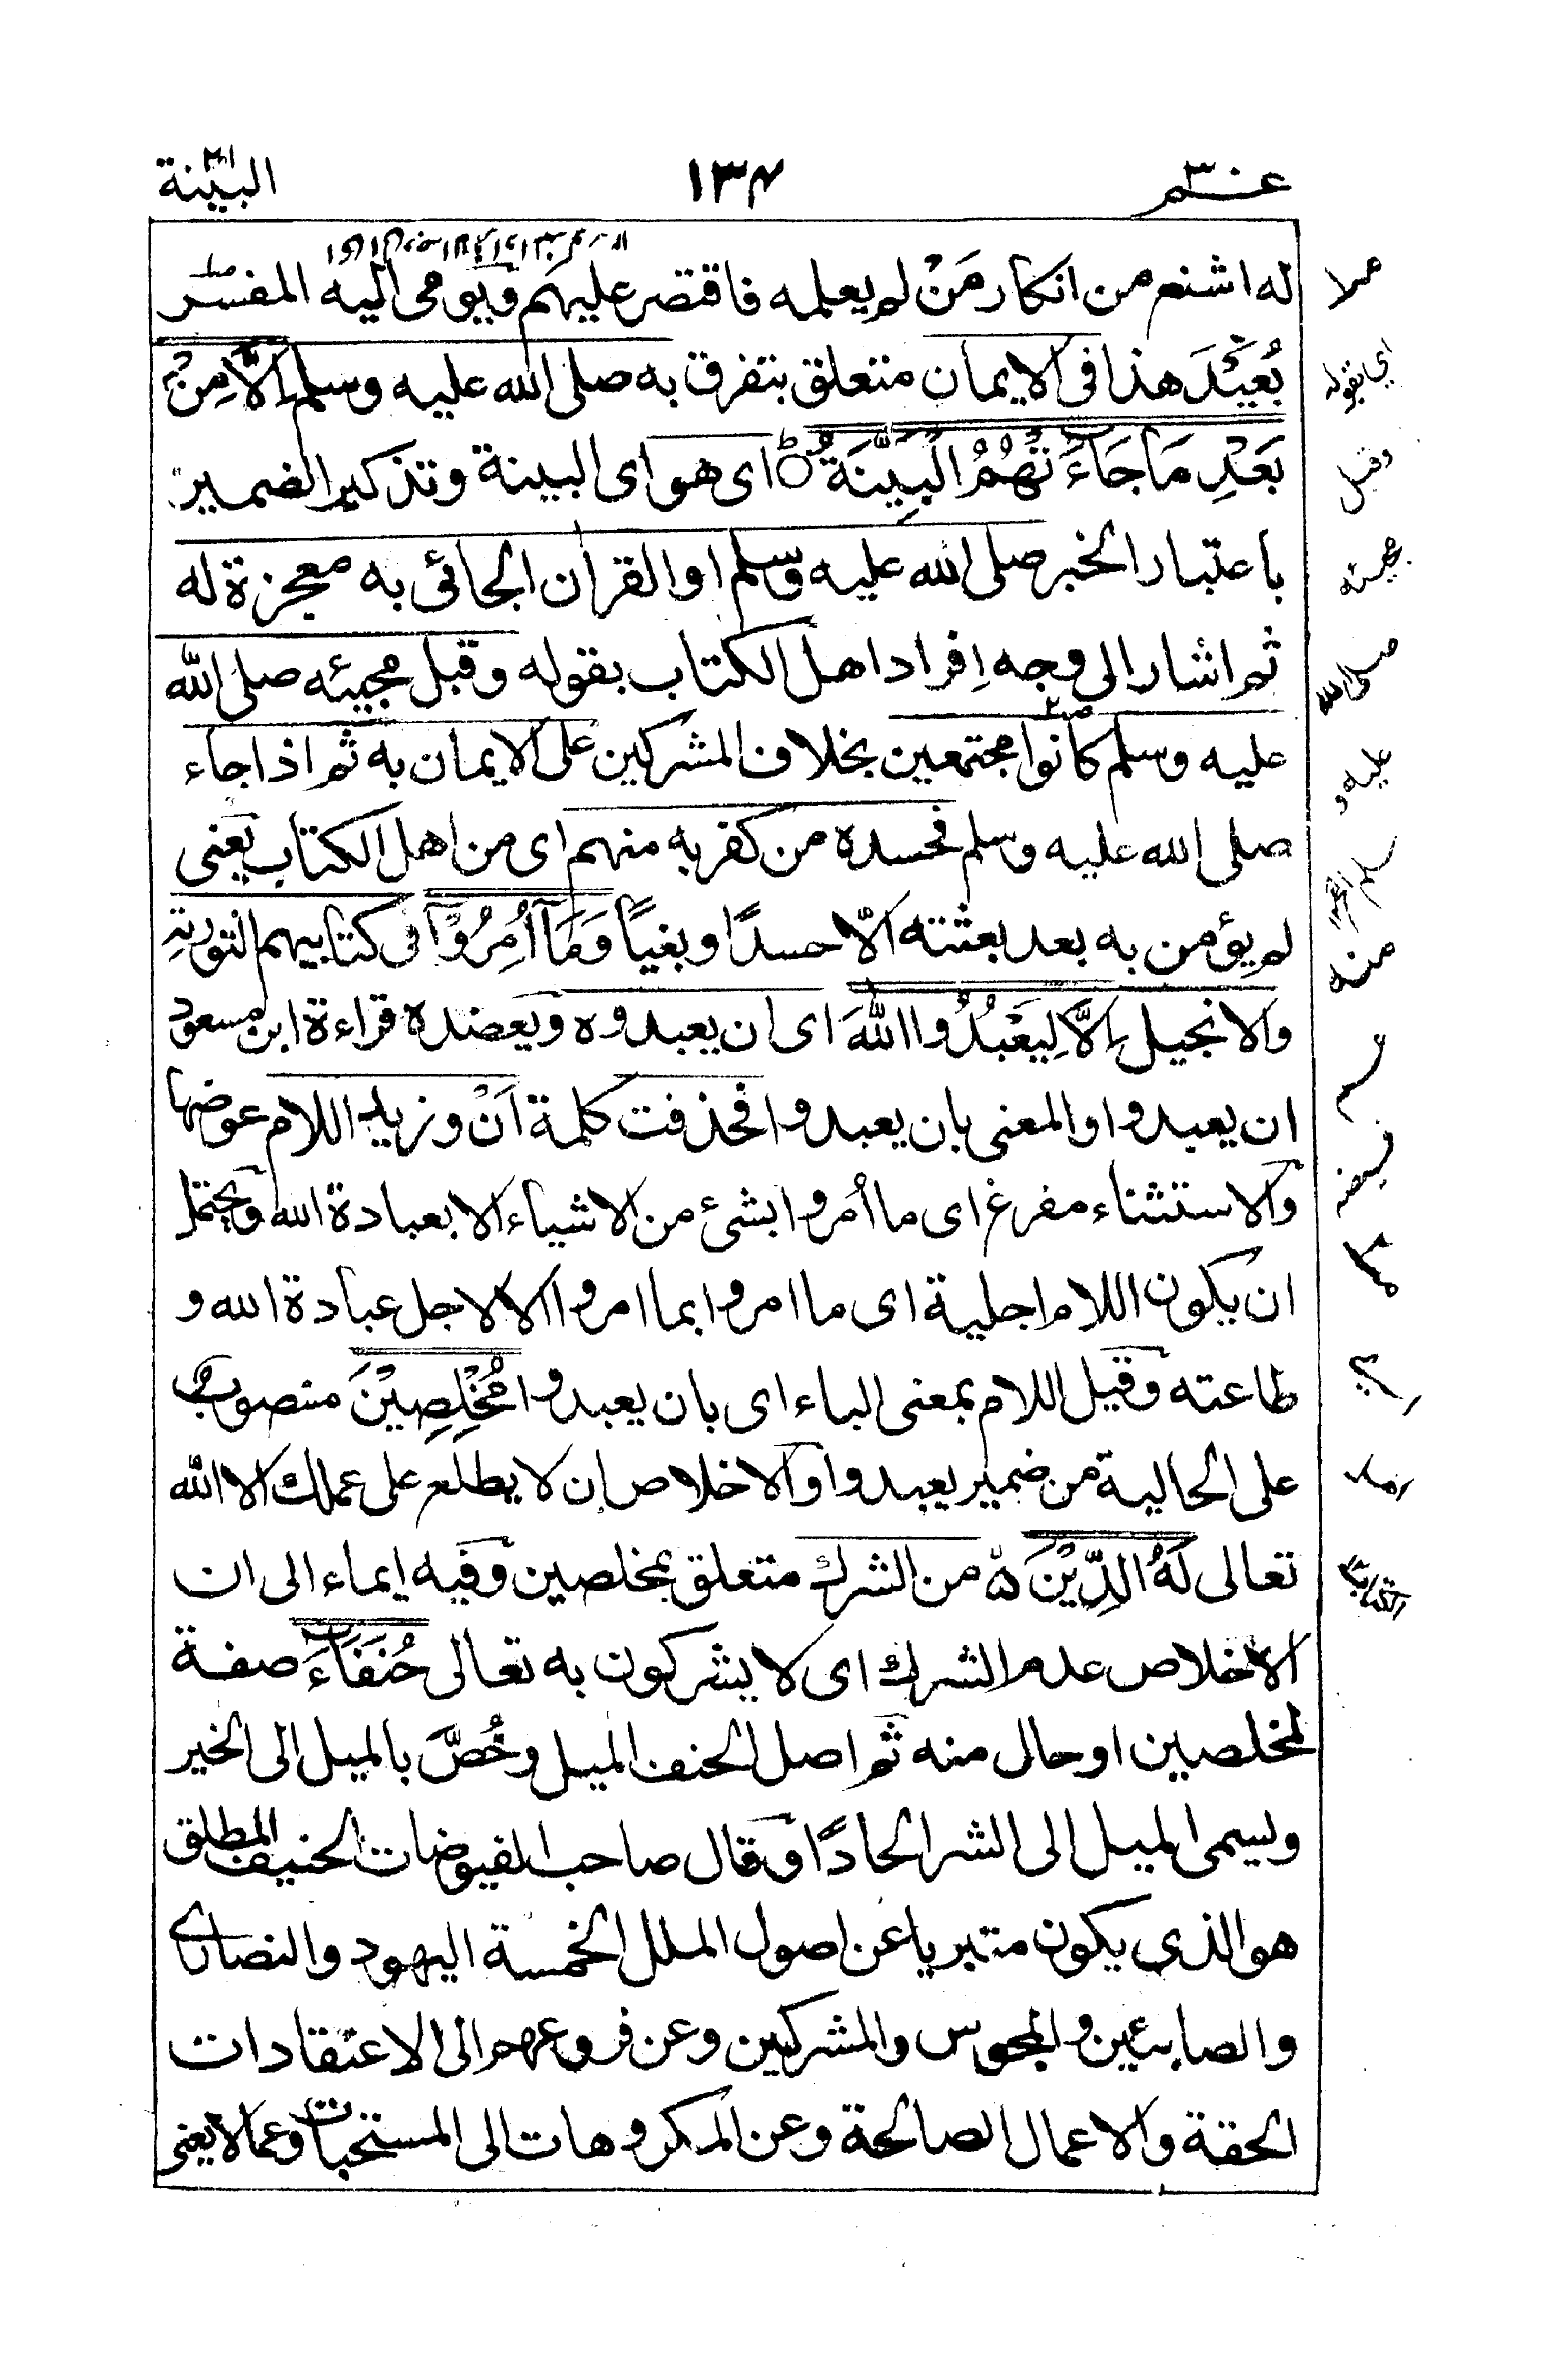 عـم ٣٠
١٣٤
البيّنة
له اشنع من انكار مَنْ لم يعلمه فاقتصر عليهم ويومى اليه المفسر
بُعَيْدَ هذا فى الايمان متعلق بتفرق به صلى الله عليه وسلم اِلَّا مِنْۢ
بَعْدِ مَا جَآءَتْهُمُ الْبَيِّنَةُ اى هو اى البينة وتذكير الضمير
باعتبار الخبر صلى الله عليه وسلم او القران الجائى به معجزة له
ثم اشار الى وجه اِفراد اهل الكتاب بقوله وقبل مجيئه صلى الله
عليه وسلم كانوا مجتمعين بخلاف المشركين على الايمان به ثم اذا جاء
صلى الله عليه وسلم فحسده من كفر به منهم اى من اهل الكتاب يعنى
لم يؤمن به بعد بعثته الّا حسدًا وبغيًا وَمَآ اُمِرُوْٓا فى كتابيهم التورىة
والانجيل اِلَّا لِيَعْبُدُوا اللّٰهَ اى ان يعبدوه ويعضده قراءة ابن مسعود
ان يعبدوا او المعنى بان يعبدوا فحذفت كلمة اَنْ وزيد اللام عوضها
والاستثناء مفرغ اى ما اُمروا بشئ من الاشياء الا بعبادة الله ويحتمل
ان يكون اللام اجلية اى ما امروا بما امروا الا لاجل عبادة الله و
طاعته وقيل اللام بمعنى الباء اى بان يعبدوا مُخْلِصِيْنَ منصوب
على الحالية من ضمير يعبدوا والاخلاص ان لا يطلع على عملك الا الله
تعالى لَهُ الدِّيْنَ من الشرك متعلق بمخلصين وفيه ايماء الى ان
الاخلاص عدم الشرك اى لا يشركون به تعالى حُنَفَآءَ صفة
لمخلصين او حال منه ثم اصل الحنف الميل وخُصَّ بالميل الى الخير
ويسمى الميل الى الشر الحادًا وقال صاحب الفيوضات الحنيف المطلق
هو الذى يكون متبريا عن اصول الملل الخمسة اليهود والنصارى
والصابئين والمجوس والمشركين وعن فروعهم الى الاعتقادات
الحقة والاعمال الصالحة وعن المكروهات الى المستحبات وعما لا يعنى
اي بقوله
وقبل
مجيئه
صلى الله
عليه و
سلم
منه